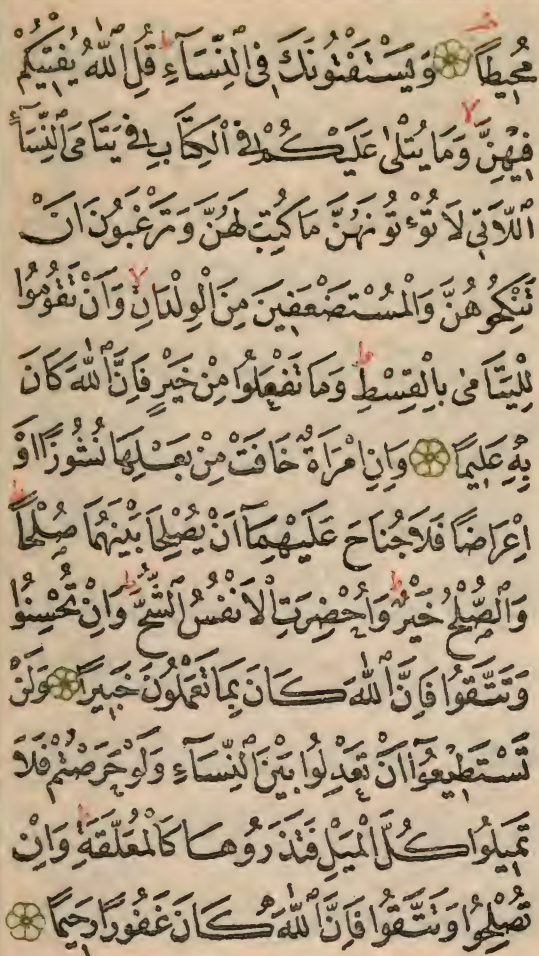 مُحِيطاً وَيَسْتَفْتُونَكَ فِى النِّسَآءِ ط قُلِ اللّٰهُ يُفْتِيكُمْ
فِيهِنَّ وَمَا يُتْلٰى عَلَيْكُمْ فِى الْكِتَابِ فِى يَتَامَى النِّسَآءِ
اللَّاتِى لَا تُؤْتُونَهُنَّ مَا كُتِبَ لَهُنَّ وَتَرْغَبُونَ اَنْ
تَنْكِحُوهُنَّ وَالْمُسْتَضْعَفِينَ مِنَ الْوِلْدَانِ لا وَاَنْ تَقُومُوا
لِلْيَتَامٰى بِالْقِسْطِ ط وَمَا تَفْعَلُوا مِنْ خَيْرٍ فَاِنَّ اللّٰهَ كَانَ
بِهِ عَلِيماً وَاِنِ امْرَاَةٌ خَافَتْ مِنْ بَعْلِهَا نُشُوزًا اَوْ
اِعْرَاضًا فَلَا جُنَاحَ عَلَيْهِمَآ اَنْ يُصْلِحَا بَيْنَهُمَا صُلْحاً ط
وَالصُّلْحُ خَيْرٌ ط وَاُحْضِرَتِ الْاَنْفُسُ الشُّحَّ ط وَاِنْ تُحْسِنُوا
وَتَتَّقُوا فَاِنَّ اللّٰهَ كَانَ بِمَا تَعْمَلُونَ خَبِيراً وَلَنْ
تَسْتَطِيعُوٓا اَنْ تَعْدِلُوا بَيْنَ النِّسَآءِ وَلَوْ حَرَصْتُمْ فَلَا
تَمِيلُوا كُلَّ الْمَيْلِ فَتَذَرُوهَا كَالْمُعَلَّقَةِ ط وَاِنْ
تُصْلِحُوا وَتَتَّقُوا فَاِنَّ اللّٰهَ كَانَ غَفُورًا رَحِيماً